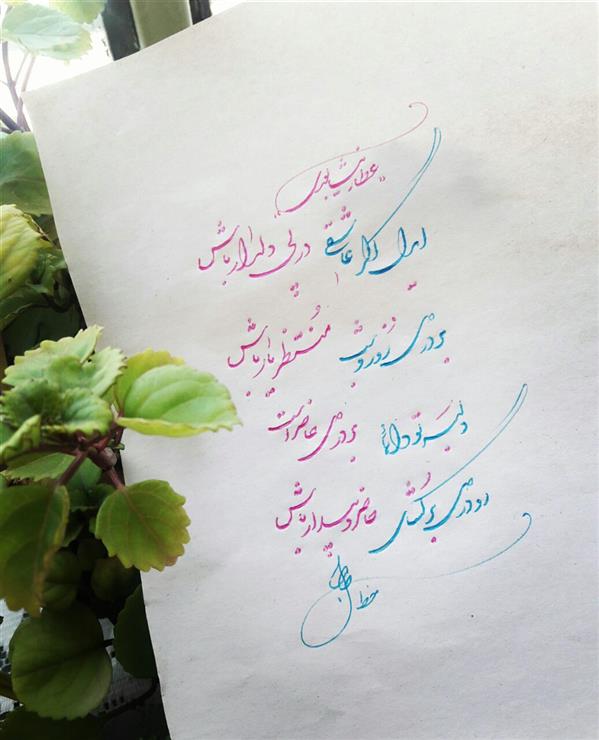 "عطار نیشابوری"
ایدل اگر عاشقی در پی دلدار باش
بر در دل روز و شب منتظر یار باش
دلبر تو دائما بر در دل حاضر است
رو در دل برگشای حاضر و بیدار باش
خط